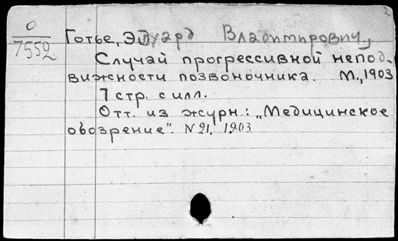 0
7552
Готье, Эдуард Владимирович,
Случай прогрессивной непод-
вижности позвоночника. М., 1903
7 стр. с илл.
Отт. из журн.: „Медицинское
обозрение". N 21, 1903